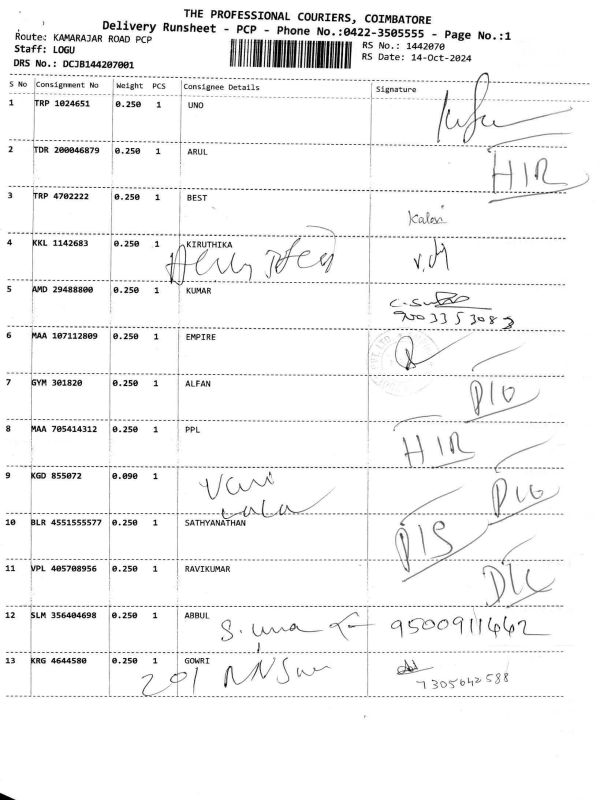 THE PROFESSIONAL COURIERS, COIMBATORE
Delivery Runsheet - PCP - Phone No.:0422-3505555 - Page No.:1
Route: KAMARAJAR ROAD PCP
RS No.: 1442070
Staff: LOGU
RS Date: 14-Oct-2024
DRS No.: DCJB144207001
S No Consignment No Weight PCS Consignee Details Signature
1 TRP 1024651 0.250 1 UNO
2 TDR 200046879 0.250 1 ARUL
H I R
3 TRP 4702222 0.250 1 BEST
4 KKL 1142683 0.250 1 KIRUTHIKA
5 AMD 29488800 0.250 1 KUMAR
6 MAA 107112809 0.250 1 EMPIRE
7 GYM 301820 0.250 1 ALFAN
8 MAA 705414312 0.250 1 PPL
H I R
9 KGD 855072 0.090 1
10 BLR 4551555577 0.250 1 SATHYANATHAN
11 VPL 405708956 0.250 1 RAVIKUMAR
12 SLM 356404698 0.250 1 ABBUL
9500911442
13 KRG 4644580 0.250 1 GOWRI
201
7305642588